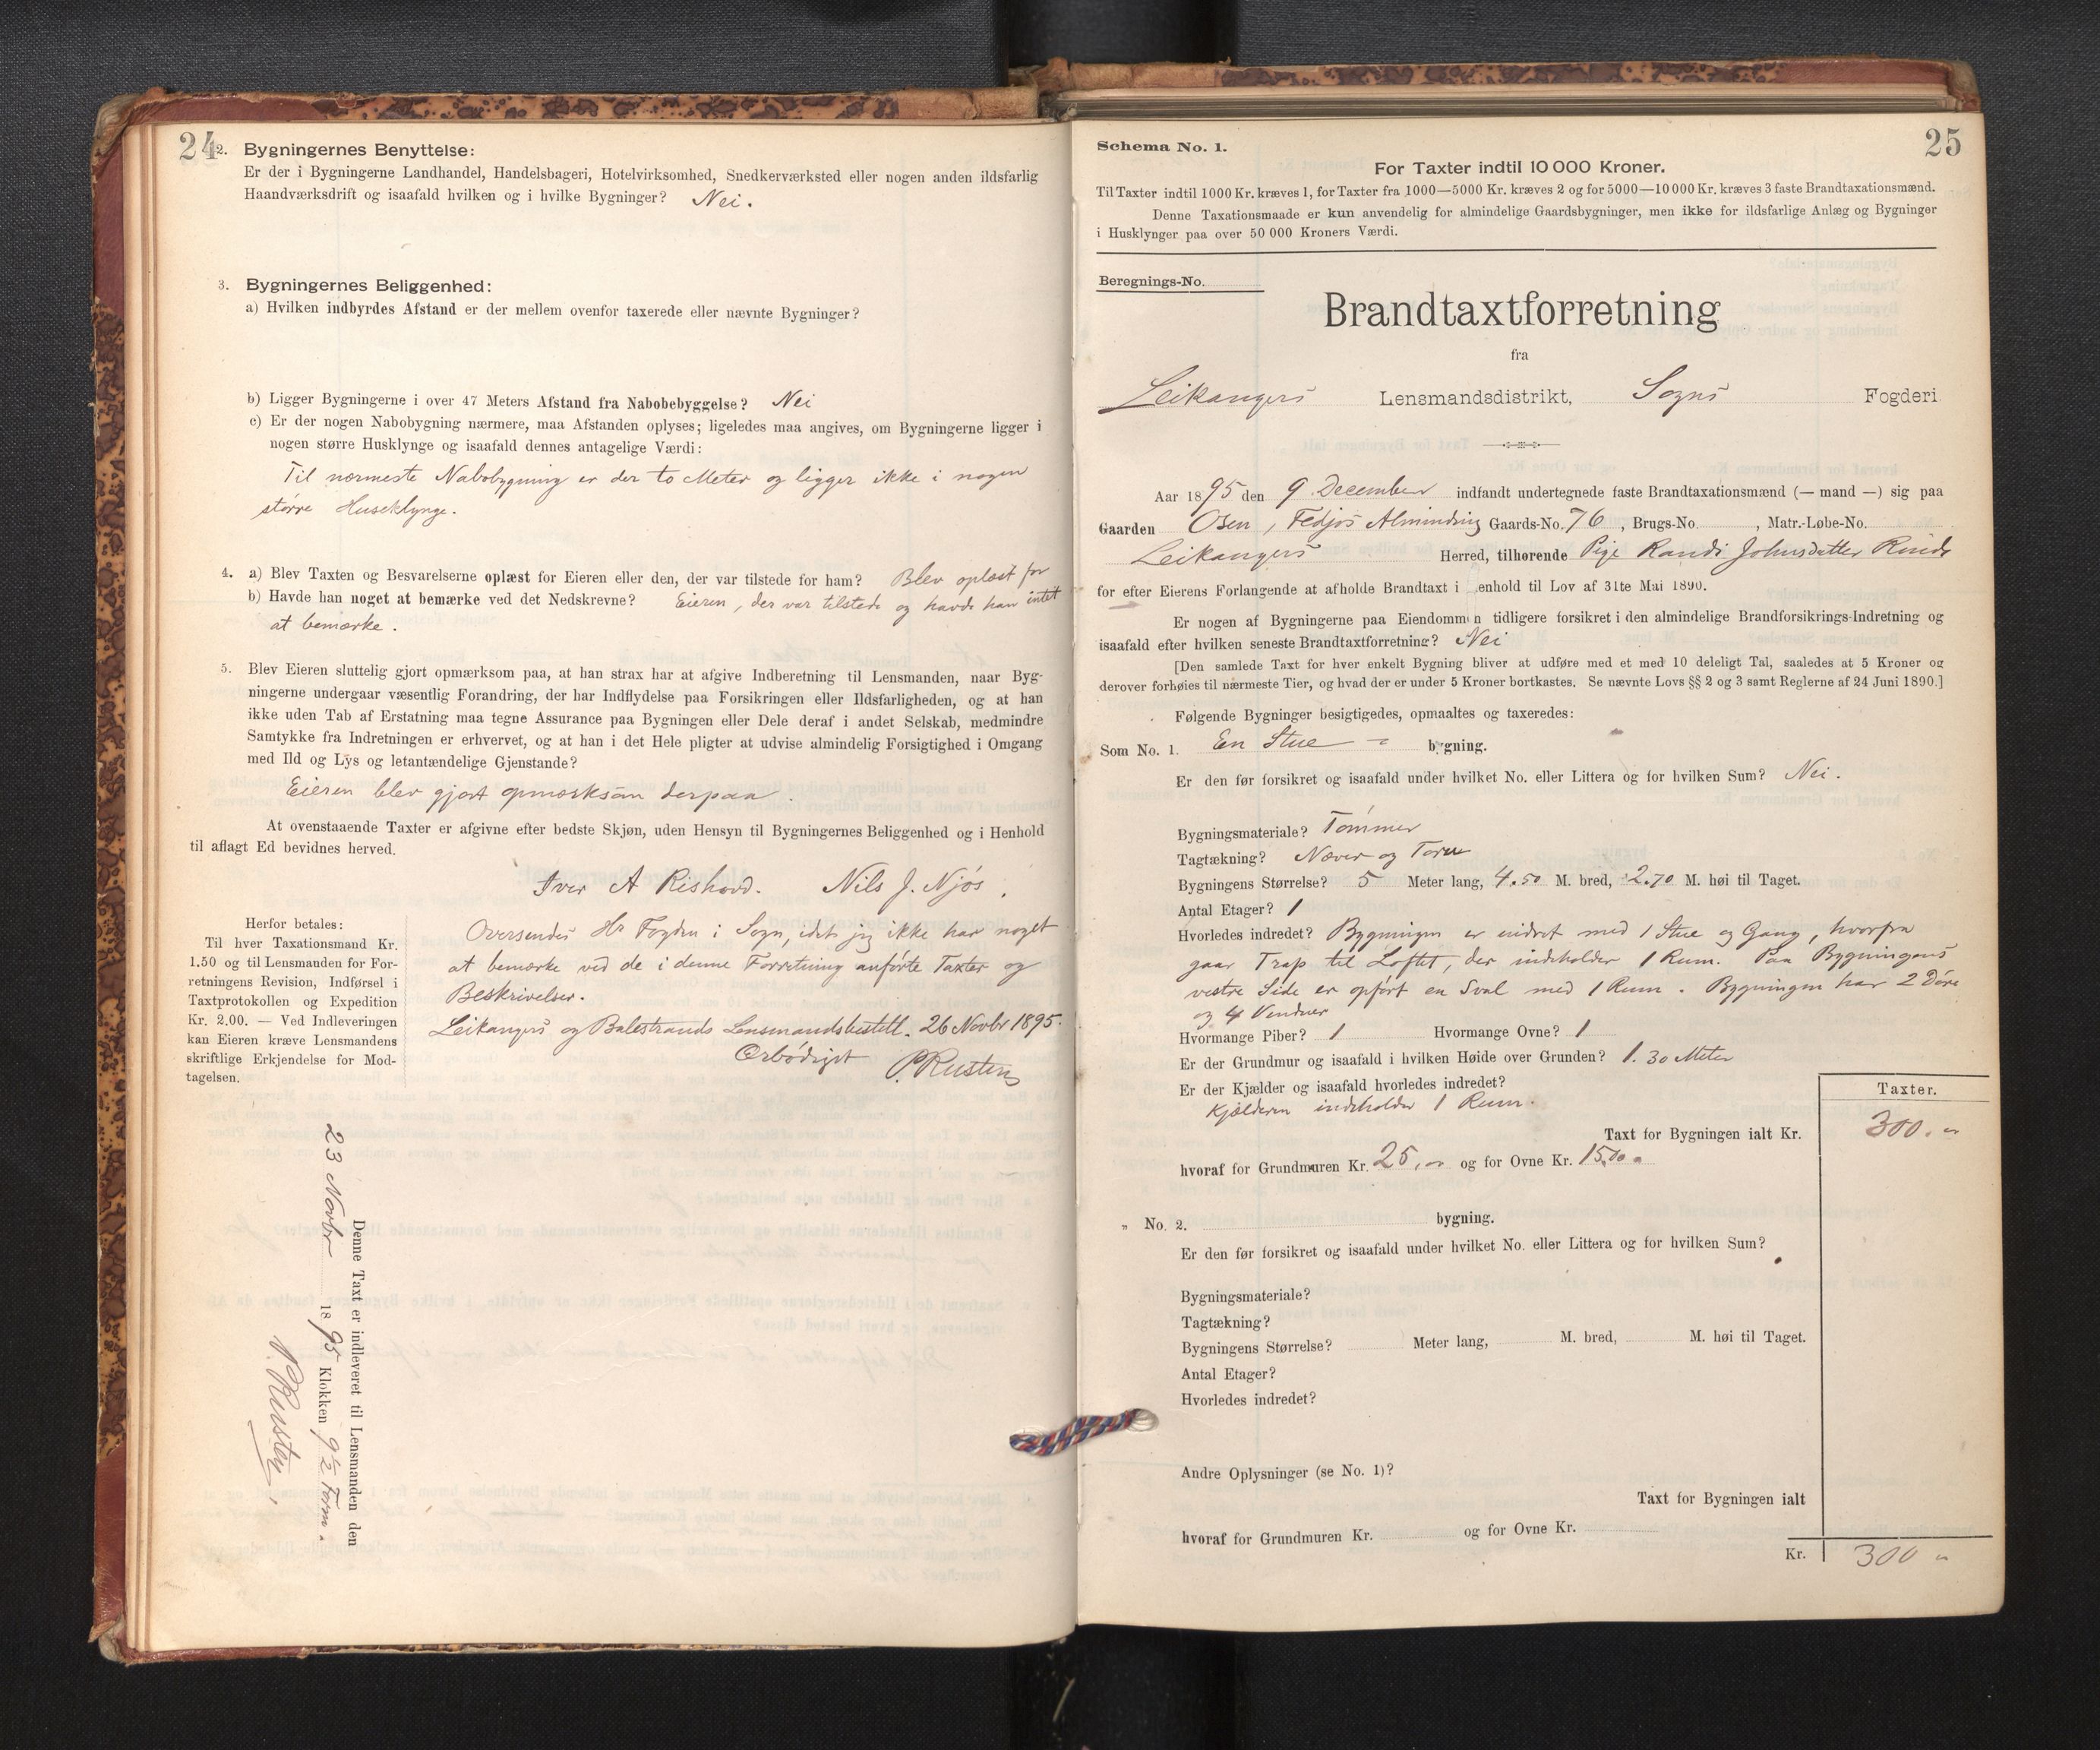 24
2. Bygningernes Benyttelse:
Er der i Bygningerne Landhandel, Handelsbageri, Hotelvirksomhed, Snedkerværksted eller nogen anden ildsfarlig
Haandværksdrift og isaafald hvilken og i hvilke Bygninger? Nei.
3. Bygningernes Beliggenhed:
a) Hvilken indbyrdes Afstand er der mellem ovenfor taxerede eller nævnte Bygninger?
b) Ligger Bygningerne i over 47 Meters Afstand fra Nabobebyggelse? Nei
c) Er der nogen Nabobygning nærmere, maa Afstanden oplyses; ligeledes maa angives, om Bygningerne ligger i
nogen større Husklynge og isaafald dennes antagelige Værdi:
Til nærmeste Nabobygning er der to Meter og ligger ikke i nogen
større Huseklynge.
4. a) Blev Taxten og Besvarelserne oplæst for Eieren eller den, der var tilstede for ham? Blev oplæst for
b) Havde han noget at bemærke ved det Nedskrevne? Eieren, der var tilstede og havde han intet
at bemærke.
5. Blev Eieren sluttelig gjort opmærksom paa, at han strax har at afgive Indberetning til Lensmanden, naar Byg-
ningerne undergaar væsentlig Forandring, der har Indflydelse paa Forsikringen eller Ildsfarligheden, og at han
ikke uden Tab af Erstatning maa tegne Assurance paa Bygningen eller Dele deraf i andet Selskab, medmindre
Samtykke fra Indretningen er erhvervet, og at han i det Hele pligter at udvise almindelig Forsigtighed i Omgang
med Ild og Lys og letantændelige Gjenstande?
Eieren blev gjort opmærksom derpaa.
At ovenstaaende Taxter er afgivne efter bedste Skjøn, uden Hensyn til Bygningernes Beliggenhed og i Henhold
til aflagt Ed bevidnes herved.
Iver A Rishovd. Nils J. Njøs.
Herfor betales:
Til hver Taxationsmand Kr.
1.50 og til Lensmanden for For-
retningens Revision, Indførsel i
Taxtprotokollen og Expedition
Kr. 2.00. — Ved Indleveringen
kan Eieren kræve Lensmandens
skriftlige Erkjendelse for Mod-
tagelsen.
Oversendes Hr Fogden i Sogn, idet jeg ikke har noget
at bemærke ved de i denne Forretning anførte Taxter og
Beskrivelser.
Leikangers og Balestrands Lensmandsbestill. 26 Novbr 1895.
Ærbødigst P. Rusten
Denne Taxt er indleveret til Lensmanden den
23 Novbr 1895 Klokken 9½ Form.
P. Rusten,
25
Schema No. 1.
For Taxter indtil 10 000 Kroner.
Til Taxter indtil 1000 Kr. kræves 1, for Taxter fra 1000—5000 Kr. kræves 2 og for 5000—10 000 Kr. kræves 3 faste Brandtaxationsmænd.
Denne Taxationsmaade er kun anvendelig for almindelige Gaardsbygninger, men ikke for ildsfarlige Anlæg og Bygninger
i Husklynger paa over 50 000 Kroners Værdi.
Beregnings-No.
Brandtaxtforretning
fra
Leikangers Lensmandsdistrikt, Sogns Fogderi
Aar 1895 den 9. December indfandt undertegnede faste Brandtaxationsmænd (— mand —) sig paa
Gaarden Osen, Fedjos Almindning Gaards-No. 76, Brugs-No. , Matr.-Løbe-No.
Leikangers Herred, tilhørende Pige Randi Johnsdatter Rinde
for efter Eierens Forlangende at afholde Brandtaxt i enhold til Lov af 31te Mai 1890.
Er nogen af Bygningerne paa Eiendommen tidligere forsikret i den almindelige Brandforsikrings-Indretning og
isaafald efter hvilken seneste Brandtaxtforretning? Nei
[Den samlede Taxt for hver enkelt Bygning bliver at udføre med et med 10 deleligt Tal, saaledes at 5 Kroner og
derover forhøies til nærmeste Tier, og hvad der er under 5 Kroner bortkastes. Se nævnte Lovs §§ 2 og 3 samt Reglerne af 24 Juni 1890.]
Følgende Bygninger besigtigedes, opmaaltes og taxeredes:
Som No. 1. En Stue - bygning.
Er den før forsikret og isaafald under hvilket No. eller Littera og for hvilken Sum? Nei.
Bygningsmateriale? Tømmer
Tagtækning? Næver og Torv
Bygningens Størrelse? 5 Meter lang, 4.50 M. bred, 2.70 M. høi til Taget.
Antal Etager? 1
Hvorledes indredet? Bygningen er indret med 1 Stue og Gang, hvorfra
gaar Trap til Loftet, der indeholder 1 Rum. Paa Bygningens
vestre Side er opført en Sval med 1 Rum. Bygningen har 2 Døre
og 4 Vinduer
Hvormange Piber? 1 Hvormange Ovne? 1
Er der Grundmur og isaafald i hvilken Høide over Grunden? 1.30 Meter
Er der Kjælder og isaafald hvorledes indredet?
Kjælderen indeholder 1 Rum.
Taxter.
Taxt for Bygningen ialt Kr. 300.
hvoraf for Grundmuren Kr. 25, og for Ovne Kr. 15.00
„ No. 2. bygning.
Er den før forsikret og isaafald under hvilket No. eller Littera og for hvilken Sum?
Bygningsmateriale?
Tagtækning?
Bygningens Størrelse? Meter lang, M. bred, M. høi til Taget.
Antal Etager?
Hvorledes indredet?
Andre Oplysninger (se No. 1)?
Taxt for Bygningen ialt
hvoraf for Grundmuren Kr. og for Ovne Kr.
Kr. 300